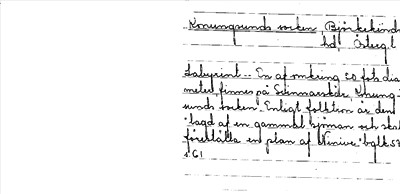 Konungsunds socken, Björkekinds
hd, Östergl
Labyrint.. En af omkring 20 fots dia
meter, finnes på Svinnarskär, Konung
sunds socken. Enligt folktron är den
"lagd af en gammal sjöman och skall
föreställa en plan af Ninive" bglk
s. 61